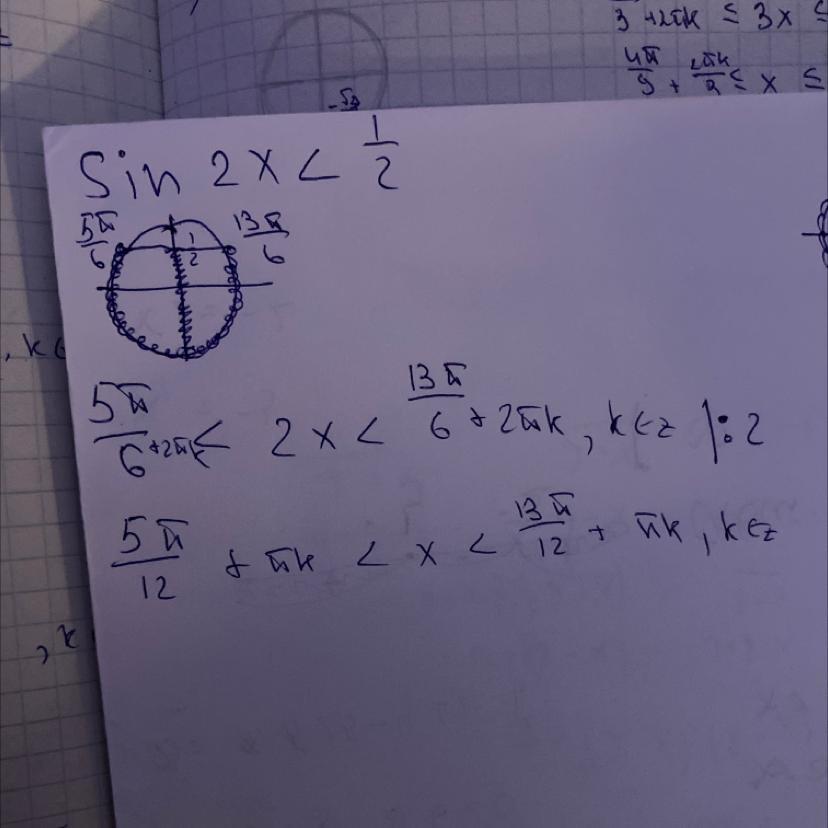 3 + 2πk ≤ 3x ≤
4π/9 + 2πk/3 ≤ x ≤
Sin 2x < 1/2
5π/6 1/2 13π/6
5π/6 + 2πk < 2x < 13π/6 + 2πk, k∈z |:2
5π/12 + πk < x < 13π/12 + πk, k∈z
, k∈
, k